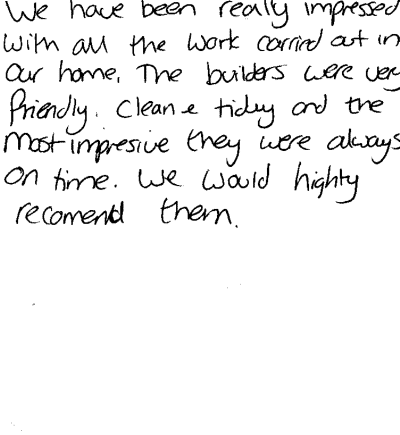 We have been really impressed
with all the work carried out in
our home. The builders were very
friendly. Clean & tidey and the
most impresive they were always
on time. We would highty
recomend them.